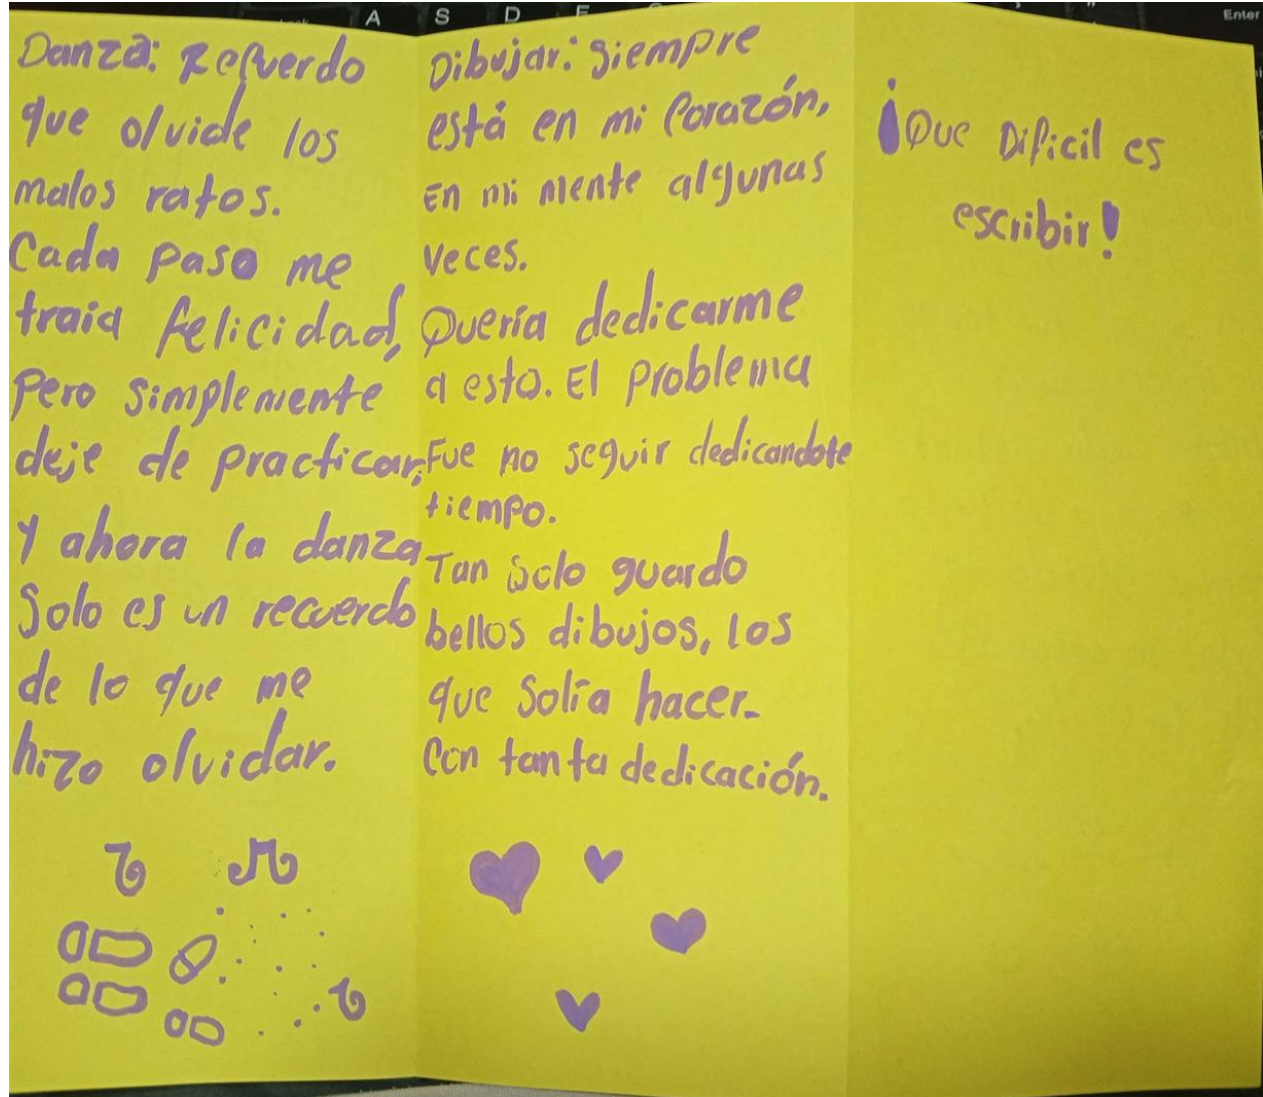 A S D
Enter
Danza: Recuerdo
que olvide los
malos ratos.
Cada paso me
traia felicidad,
Pero simplemente
deje de practicar;
Y ahora la danza
Solo es un recuerdo
de lo que me
hizo olvidar.
Dibujar: Siempre
está en mi Corazón,
En mi mente algunas
veces.
Quería dedicarme
a esto. El problema
Fue no seguir dedicandote
tiempo.
Tan solo guardo
bellos dibujos, los
que Solía hacer.
Con tanta dedicación.
¡Que Dificil es
escribir!